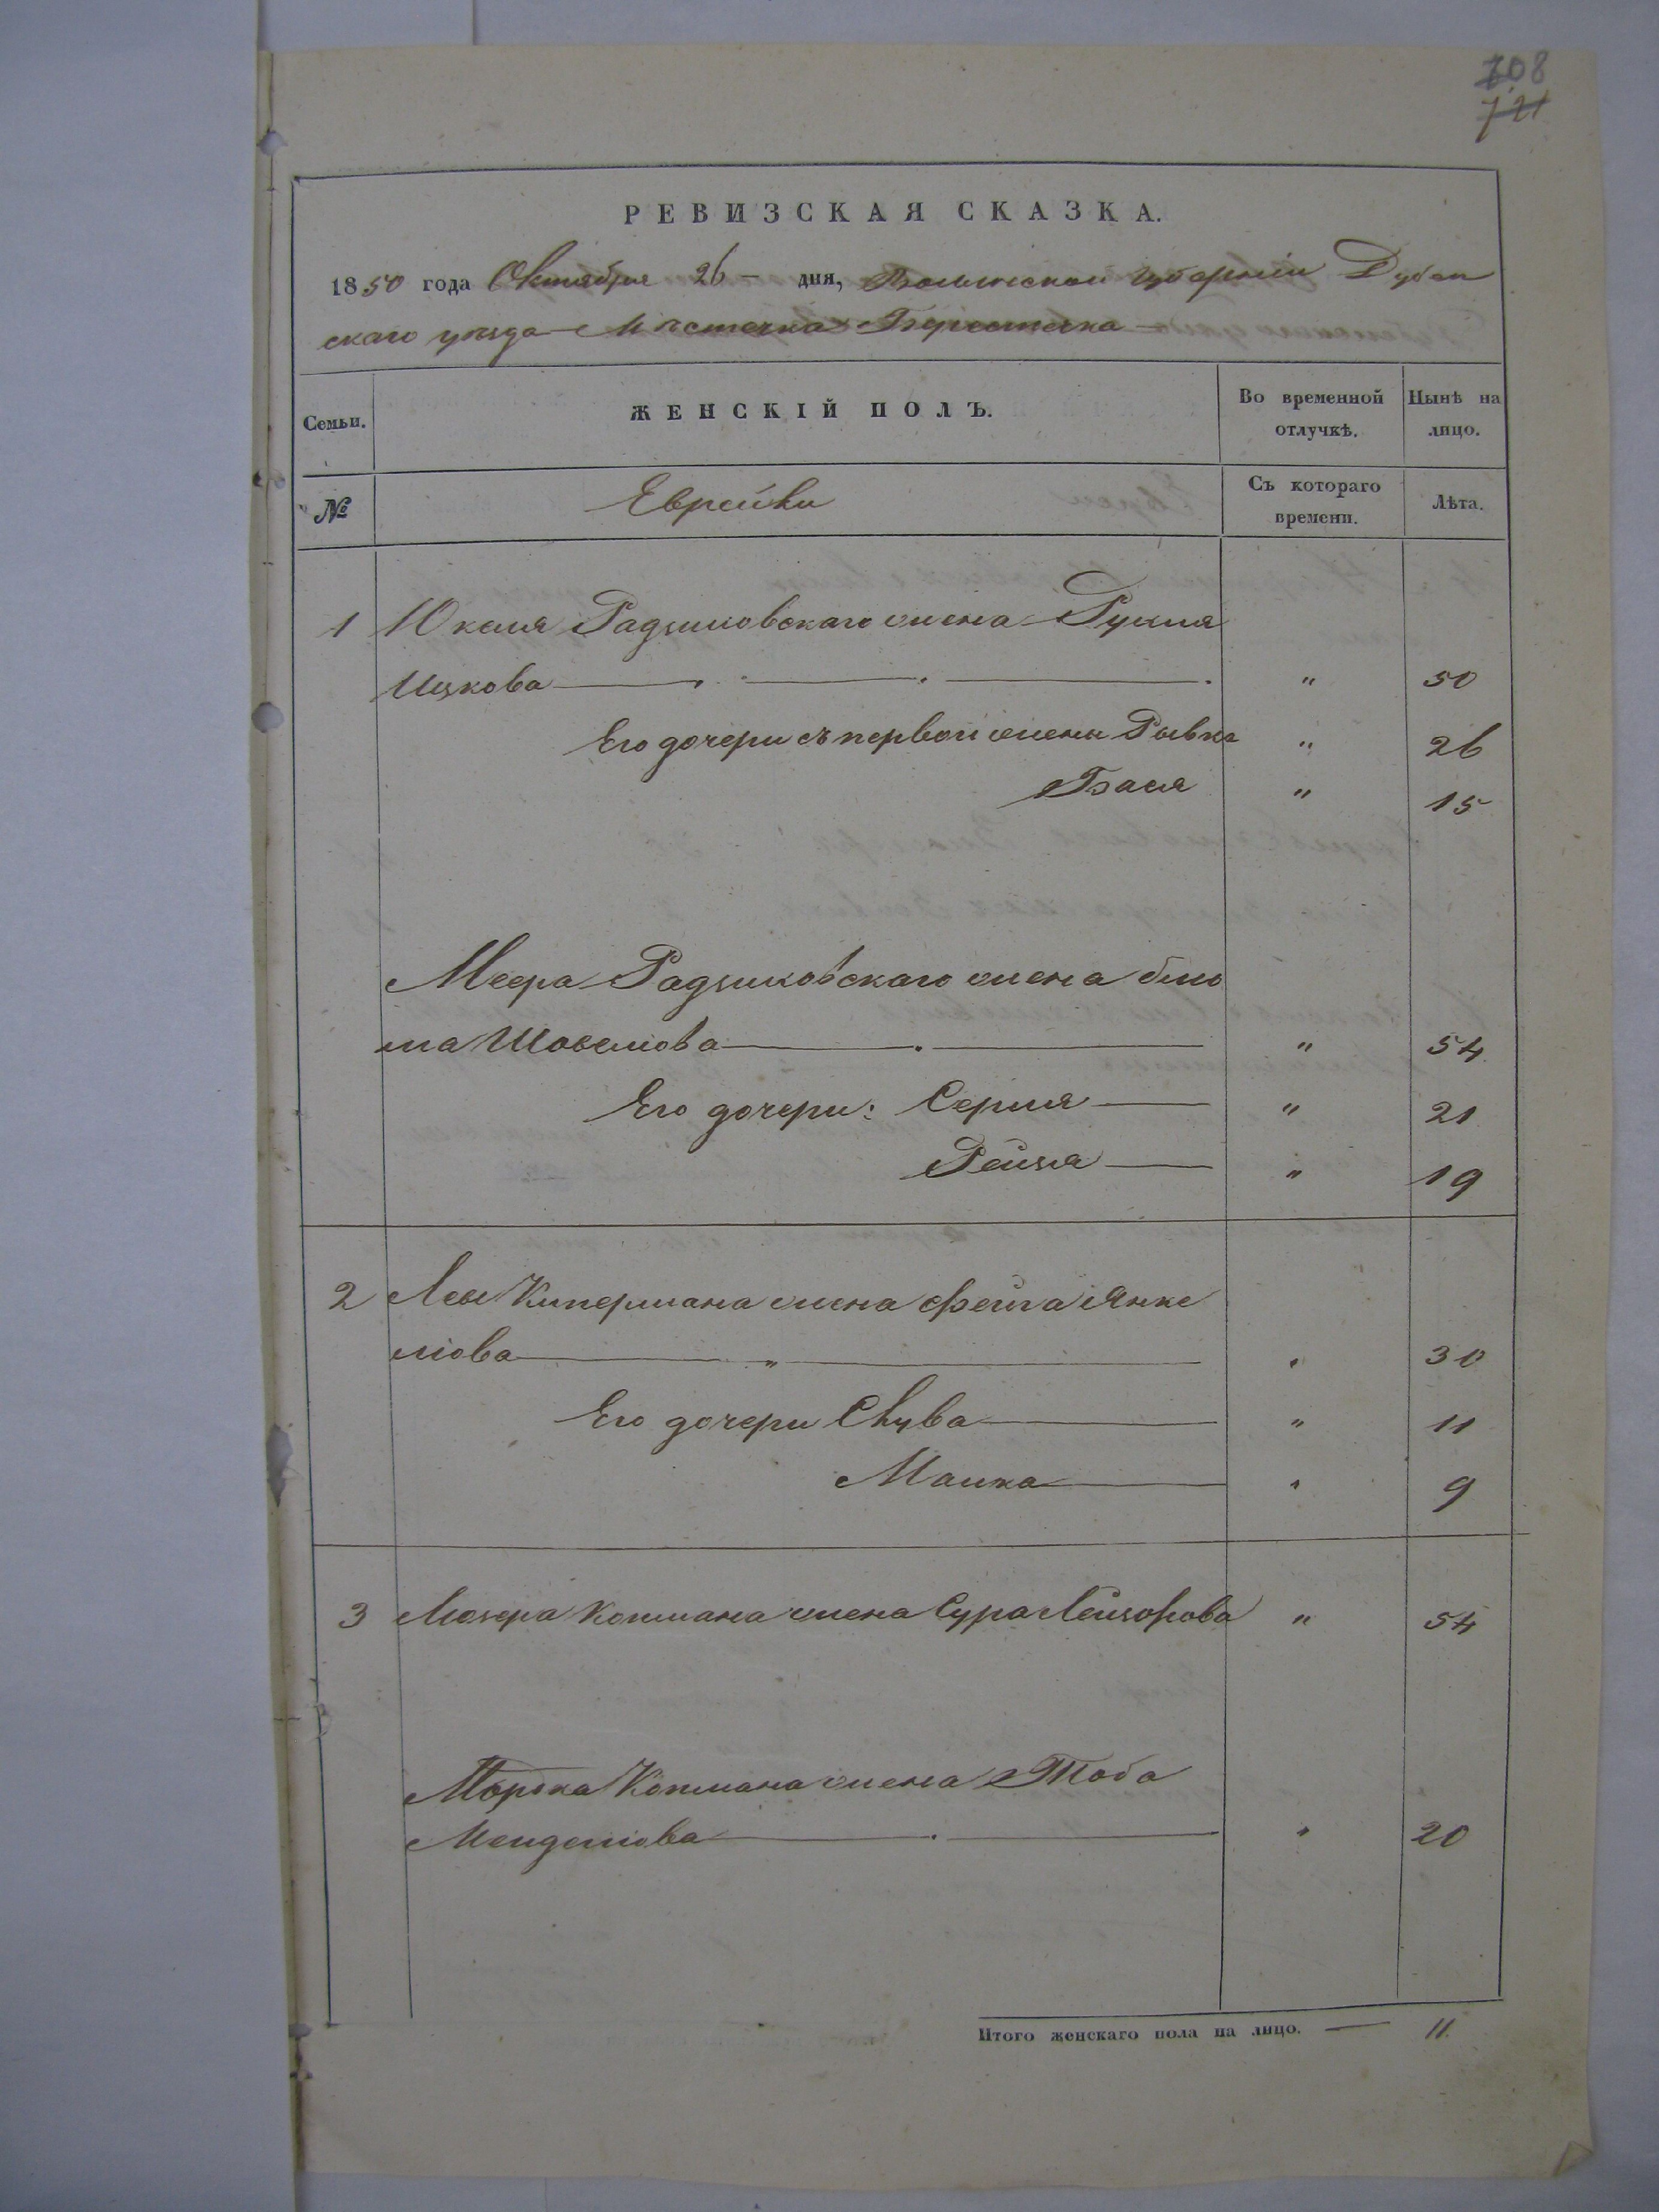 708
721
РЕВИЗСКАЯ СКАЗКА.
1850 года Октября 26 — дня, Волынской губернiи Дубен
скаго уѣзда Мѣстечка Берестечка
Семьи. ЖЕНСКІЙ ПОЛЪ. Во временной отлучкѣ. Нынѣ на лицо.
№ Еврейки Съ котораго времени. Лѣта.
1 Юкеля Радзиловскаго жена Рухля
Ицкова " 50
Его дочери съ первой жены Рывка " 26
Бася " 15
Меера Радзиловскаго жена
Иоселиова " 54
Его дочери: Серля " 21
Рейзя " 19
2 Лей Кипермана жена Фейга Янке
лiова " 30
Его дочери " 11
Малка " 9
3 Лiозера Копмана жена Сура Лейзорова " 54
Морожа Копмана жена Тоба
Менделiова " 20
Итого женскаго пола на лицо. — 11.